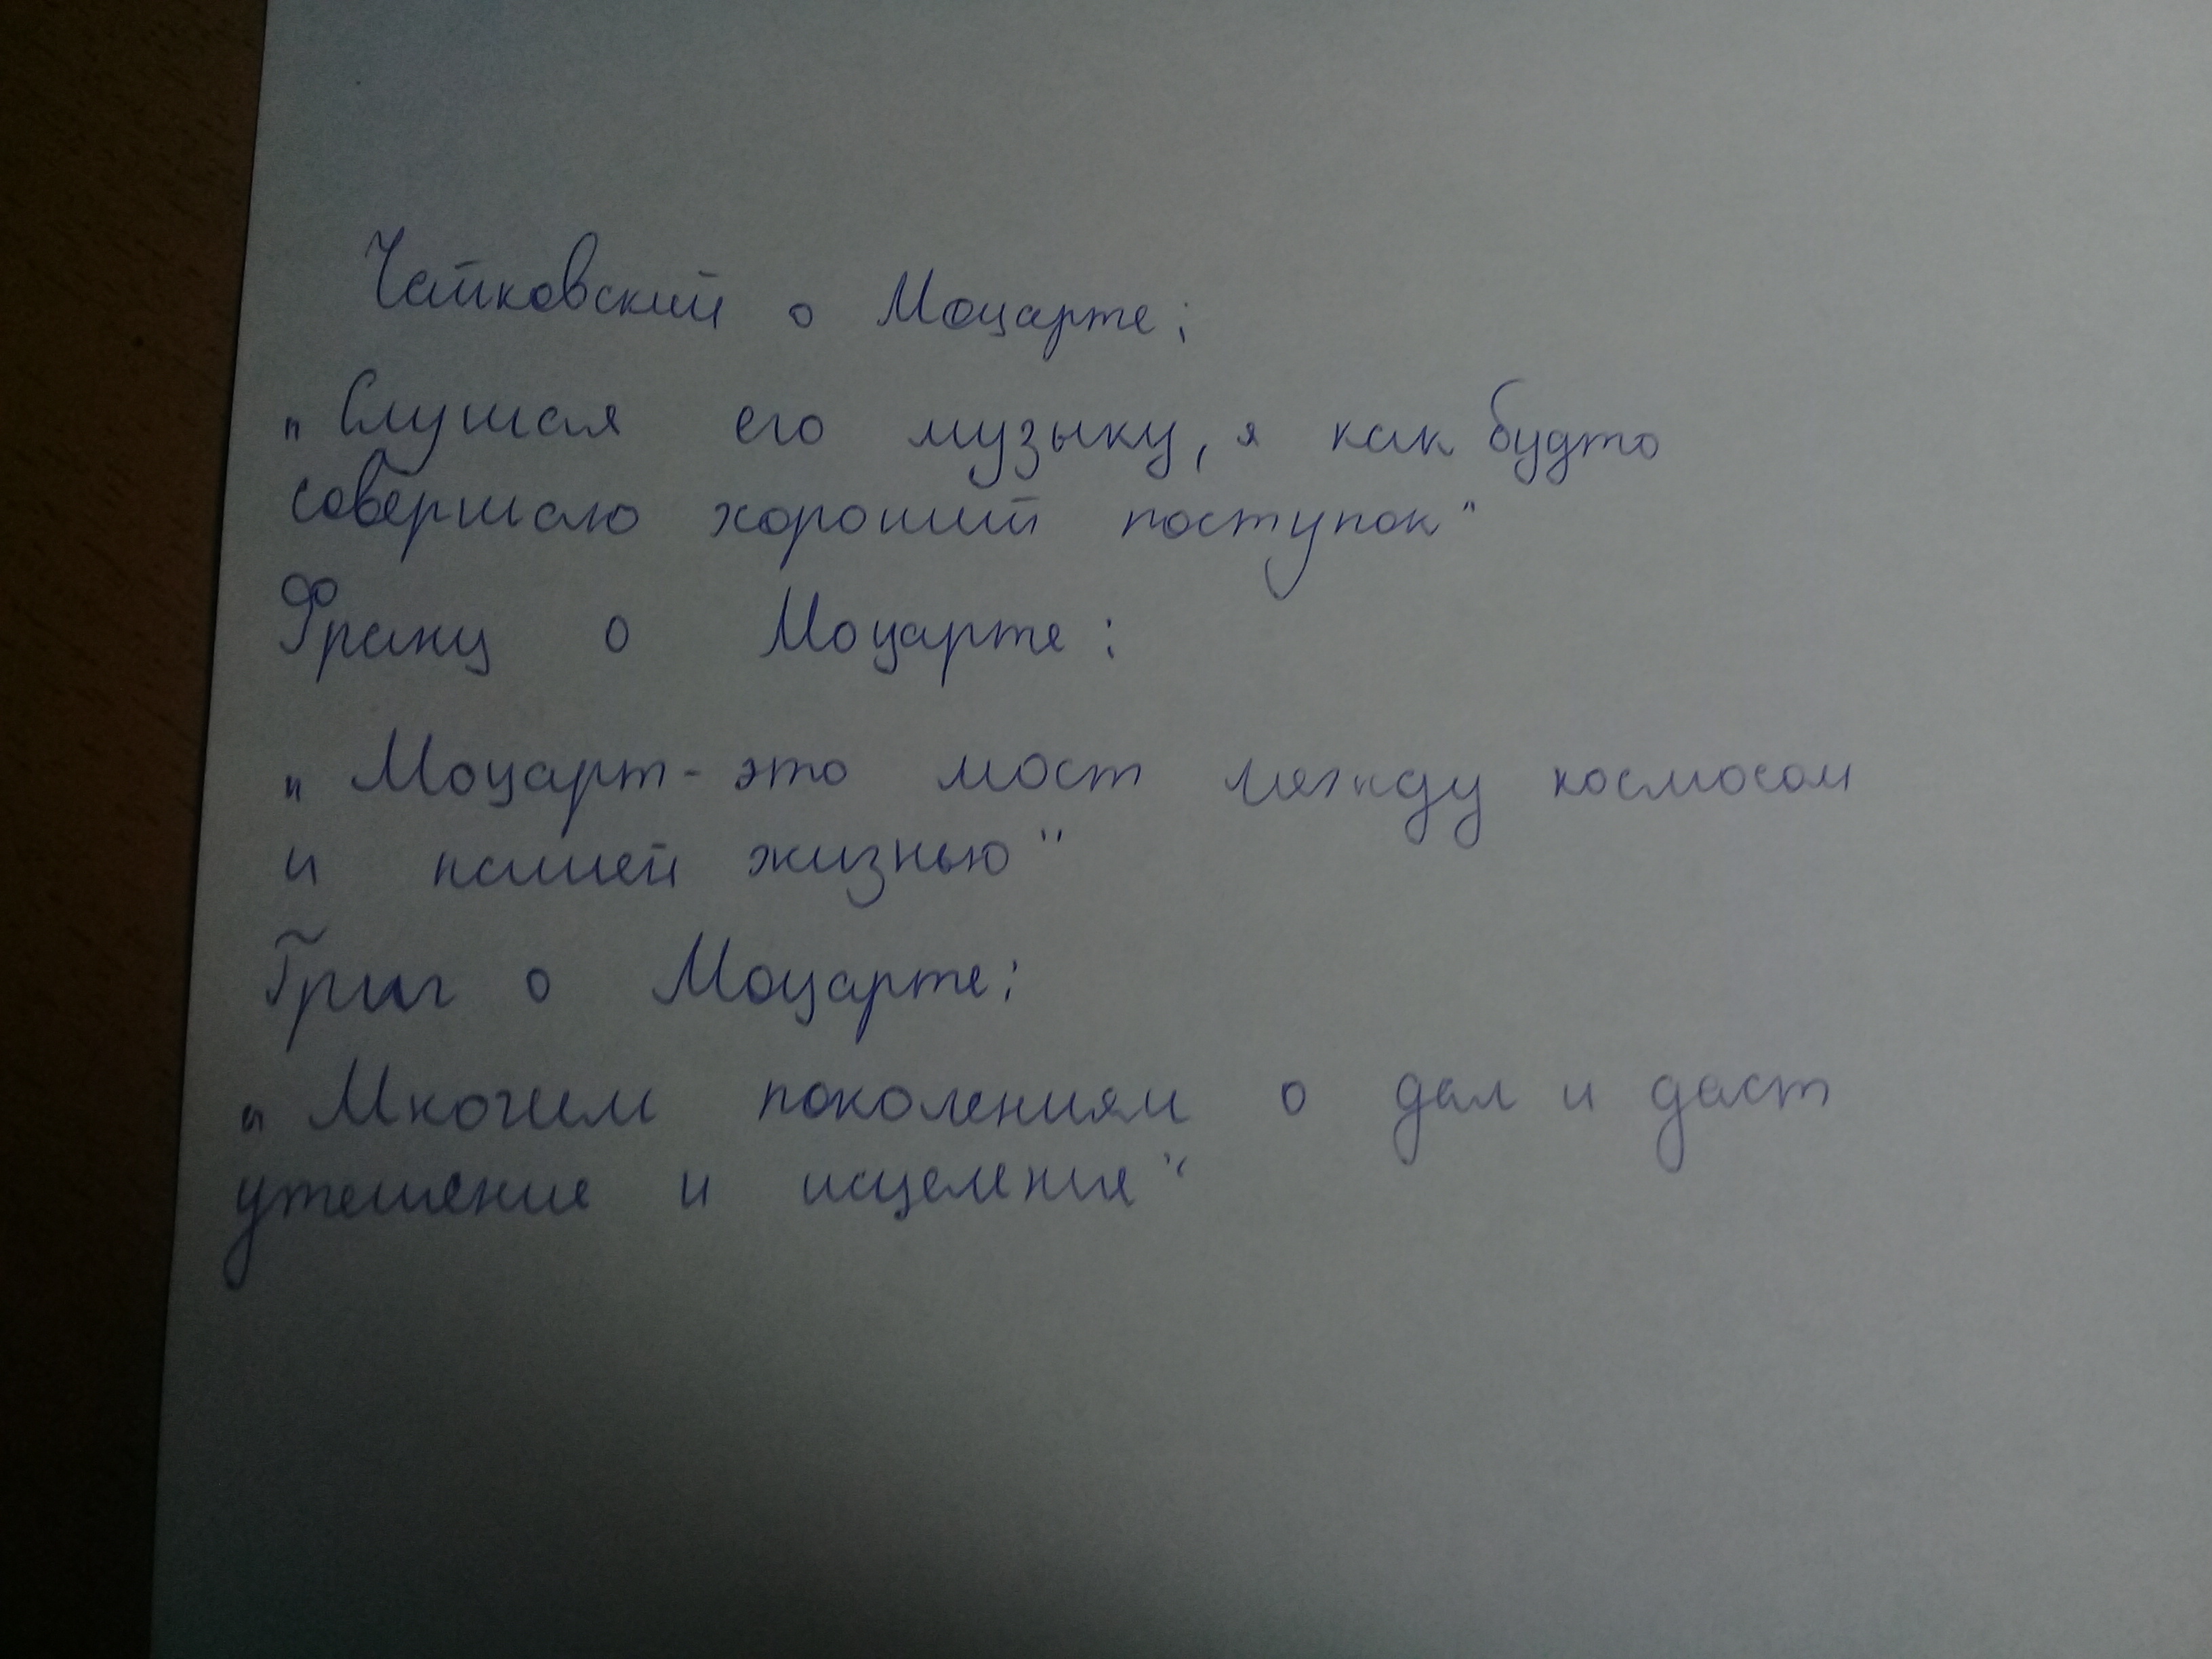 Чайковский о Моцарте:
„Слушая его музыку, я как будто
совершаю хороший поступок"
Франц о Моцарте:
„Моцарт - это мост между космосом
и нашей жизнью"
Григ о Моцарте:
„Многим поколениям о дал и даст
утешение и исцеление"